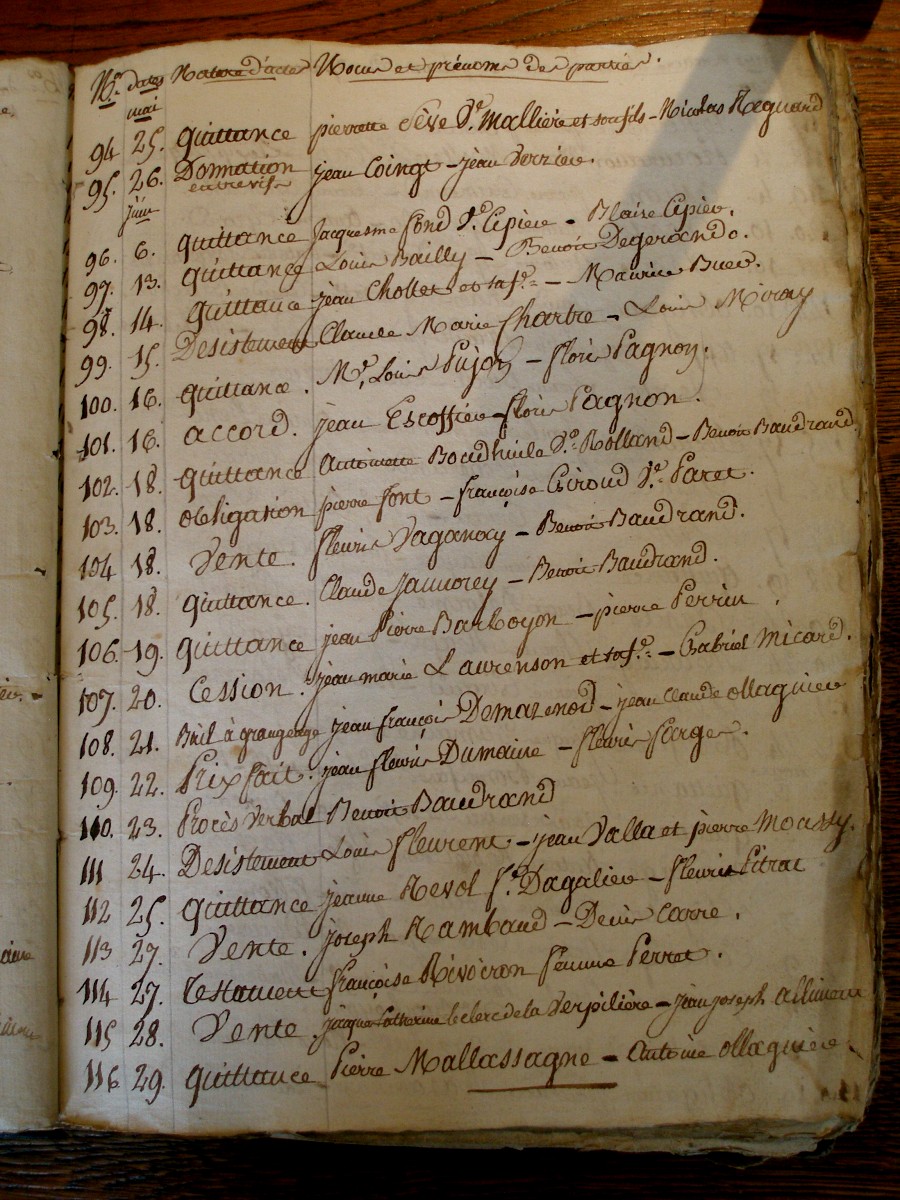 Nos. dates Nature d'actes Noms et prénoms des parties.
mai
94 25. quittance pierrette Sève Ve. Mallière et son fils - Nicolas Reguard
95. 26. Donnation entrevifs jean Coingt - jean Verrier.
juin
96. 6. quittance Jacquesme fond Ve. Cepière - Blaise Cepier.
97. 13. quittance Louis Bailly - Benoit Degerando.
98. 14. quittance jean Chollet et sa fe. - Maurice Buer.
99. 15. Desistement Claude Marie Chartre - Louis Miray
100. 16. quittance. Me. Louis Pujos - floris Pagnon.
101. 16. accord. jean Escoffier - floris Pagnon.
102. 18. quittance Antoinette Ve. Rolland - Benoit Baudrand.
103. 18. obligation pierre font - françoise Giroud Ve. Paret.
104 18. Vente. fleuris Vaganay - Benoit Baudrand.
105. 18. quittance. Claude Jaumorey - Benoit Baudrand.
106. 19. quittance jean Pierre Barboyon - pierre Perrin.
107. 20. Cession. jean marie Laurenson et sa fe. - Gabriel Micard.
108. 21. Bail à grangeage jean françois Demazenod - jean Claude ollagnier
109. 22. Prix fait. jean fleuris Dumaine - fleuris farge.
110. 23. Procès Verbal Benoit Baudrand
111 24. Desistement Louis fleurent - jean Valla et pierre Moassy.
112 25. quittance jeanne Revol fe. Dagalier - fleuris Pitrat
113 27. Vente. joseph Rambaud - Denis Carre.
114 27. testament françoise Rivoiron femme Perret.
115 28. Vente jacques Catherine le clerc de la Verpilière - jean joseph allimeux
116. 29. quittance Pierre Mallassagne - Antoine ollagnière.